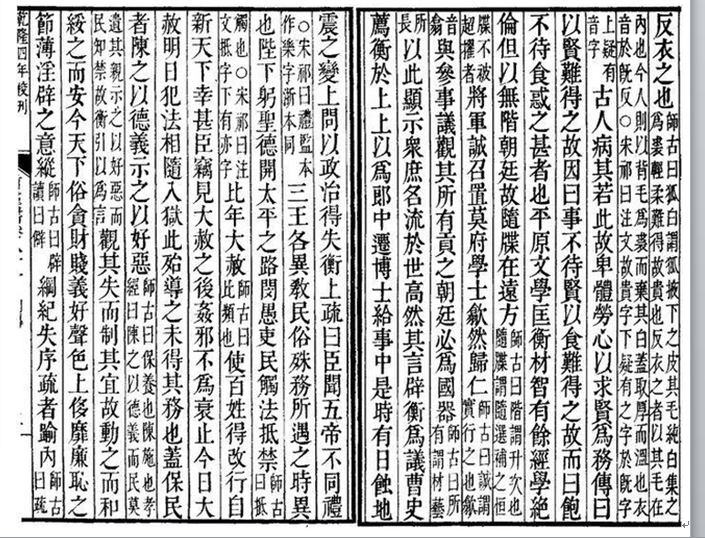 反衣之也師古曰狐白謂狐掖下之皮其毛純白集之爲裘輕柔難得故貴也反衣之者以其毛在
内也今人則以背毛爲裘而棄其白蓋取厚而溫也衣音於旣反○宋祁曰注文故貴字下疑有之字於旣字
上疑有音字古人病其若此故卑體勞心以求賢爲務傳曰
以賢難得之故因曰事不待賢以食難得之故而曰飽
不待食惑之甚者也平原文學匡衡材智有餘經學絶
倫但以無階朝廷故隨牒在遠方師古曰階謂升次也隨牒謂隨選補之恒
牒不被超擢者將軍誠召置莫府學士歙然歸仁師古曰誠謂實行之也歙
音翕與參事議觀其所有貢之朝廷必爲國器師古曰所有謂材藝
所長以此顯示衆庶名流於世高然其言辟衡爲議曹史
薦衡於上上以爲郎中遷博士給事中是時有日蝕地
震之變上問以政治得失衡上疏曰臣聞五帝不同禮
○宋祁曰禮監本作樂字浙本同三王各異敎民俗殊務所遇之時異
也陛下躬聖德開太平之路閔愚吏民觸法抵禁師古曰抵
觸也○宋祁曰注文抵字下有亦字比年大赦師古曰比頻也使百姓得改行自
新天下幸甚臣竊見大赦之後姦邪不爲衰止今日大
赦明日犯法相隨入獄此殆導之未得其務也蓋保民
者陳之以德義示之以好惡師古曰保養也陳施也孝經曰陳之以德義而民莫
遺其親示之以好惡而民知禁故衡引以爲言觀其失而制其宜故動之而和
綏之而安今天下俗貪財賤義好聲色上侈靡廉恥之
節薄淫辟之意縱師古曰辟讀曰僻綱紀失序疏者踰内師古曰疏
乾隆四年校刊